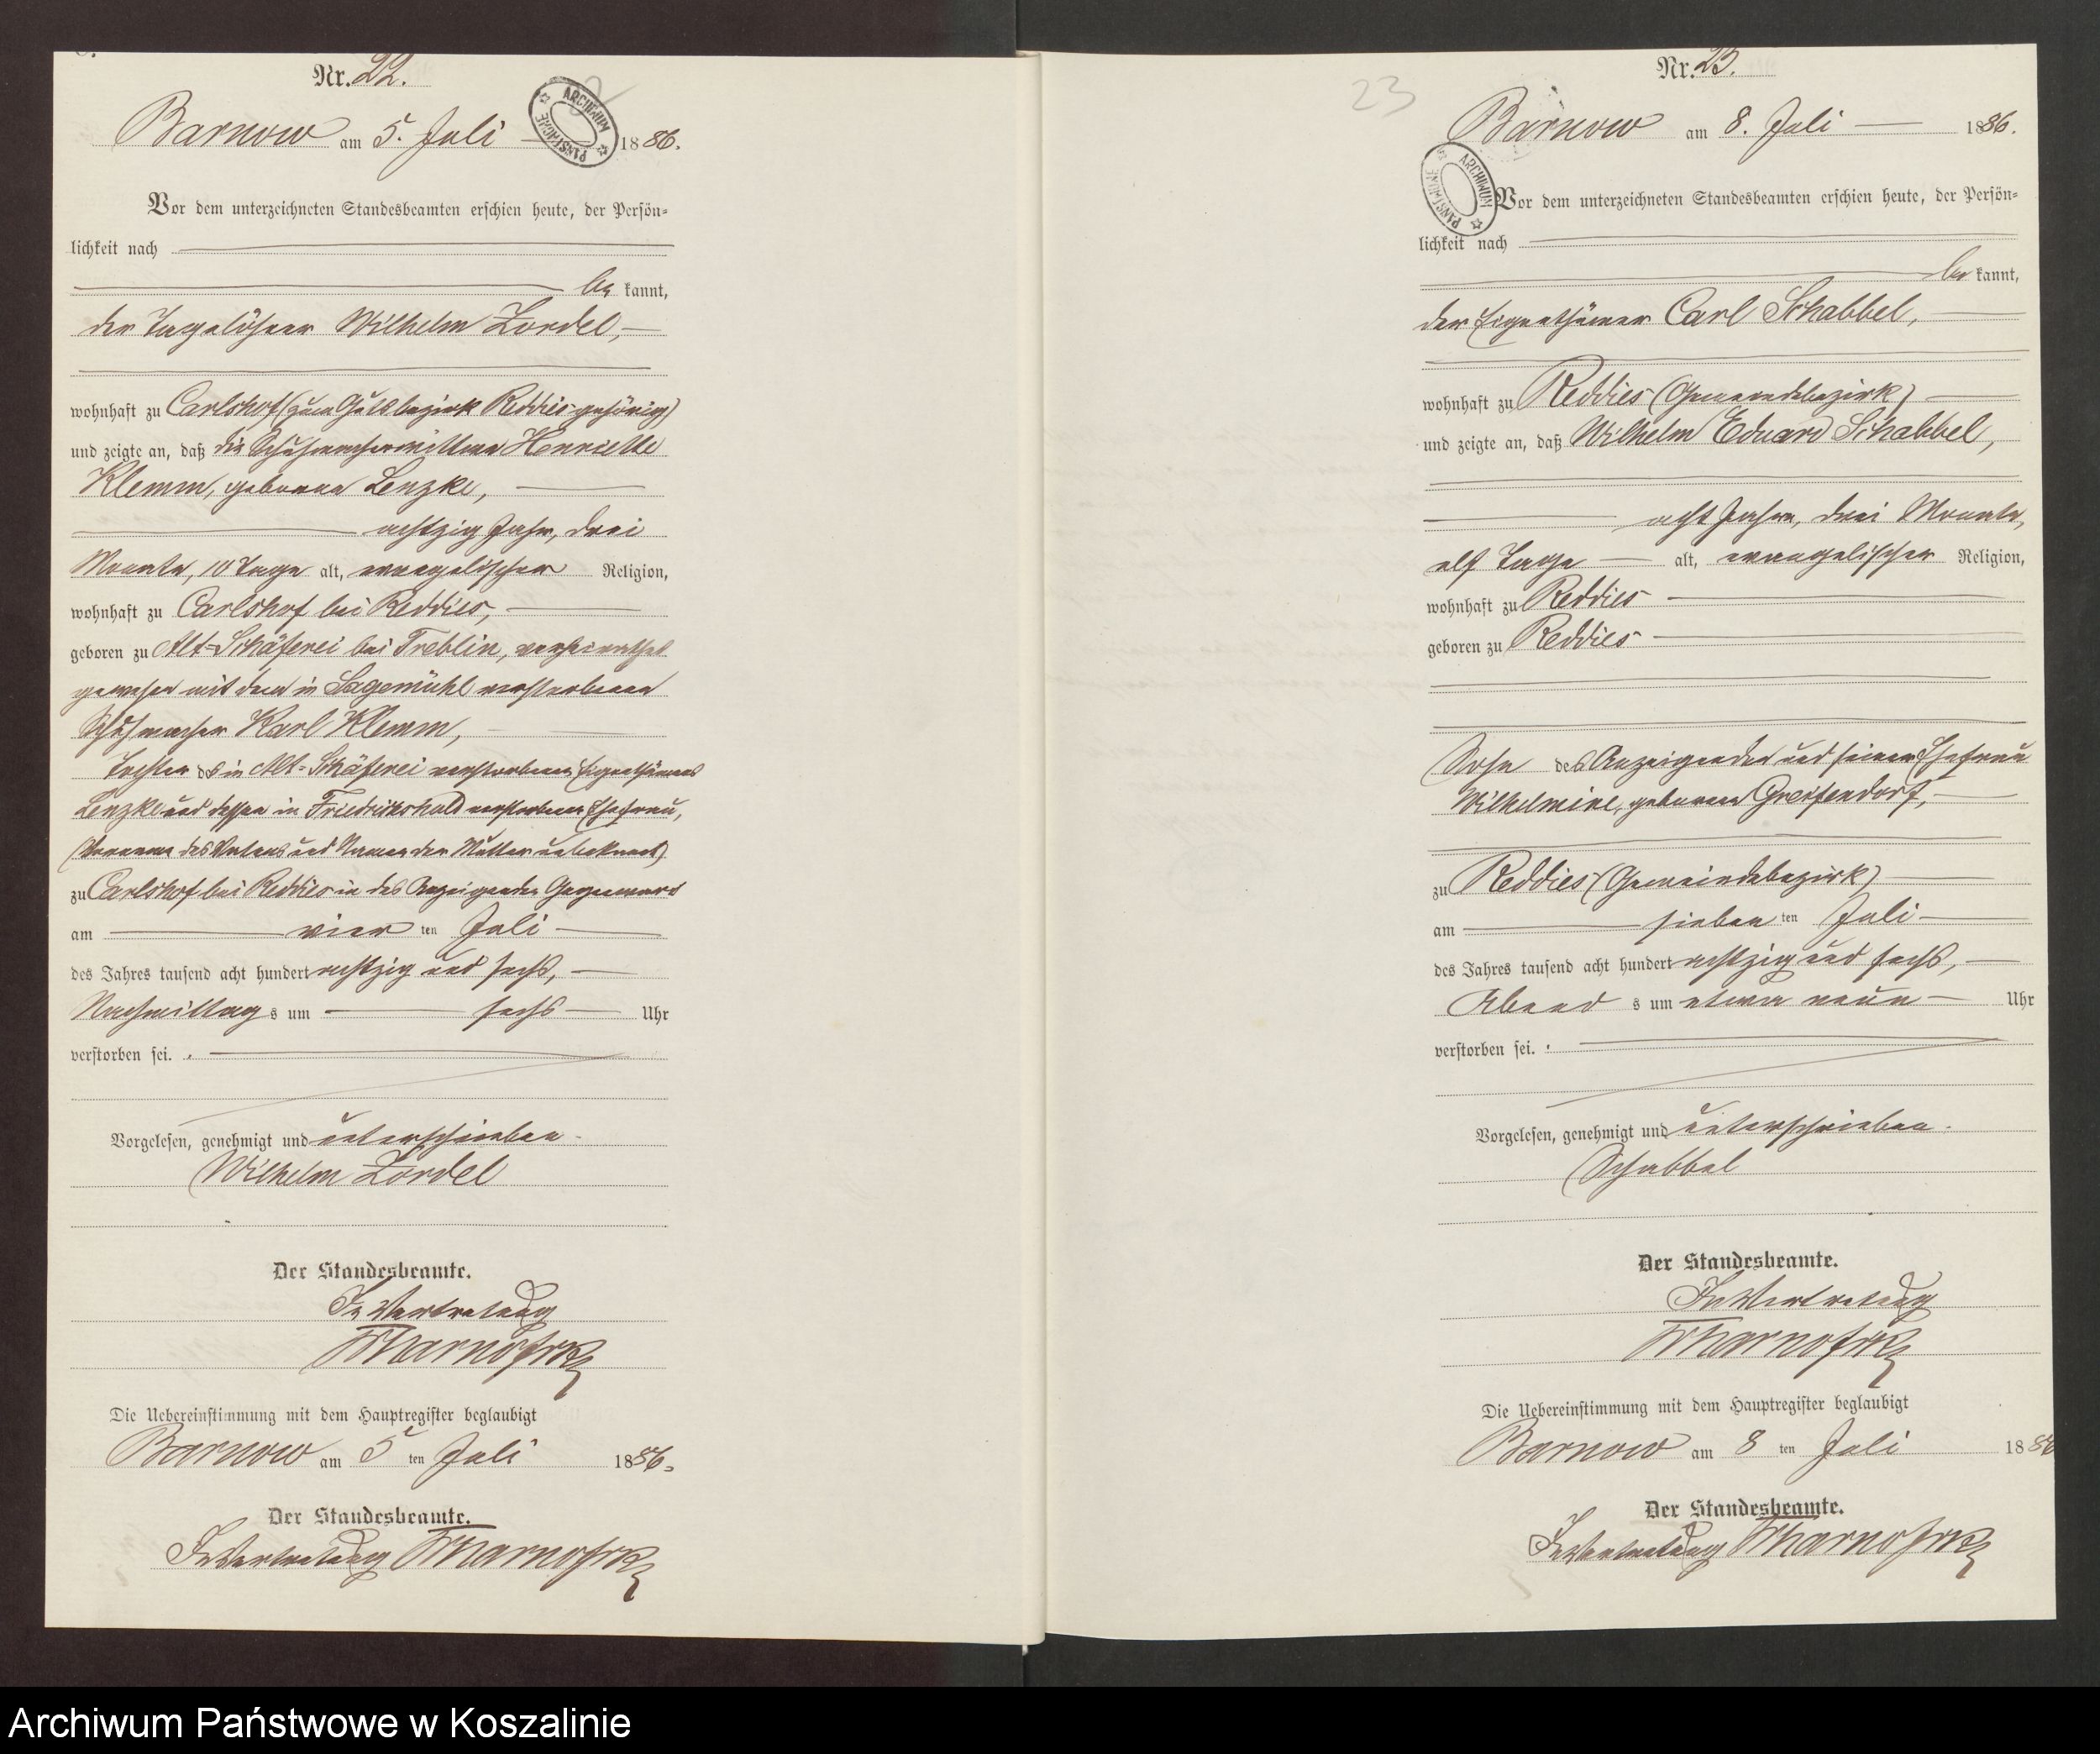 Nr. 22.
Barnow am 5. Juli 1886.
ARCHIWUM PAŃSTWOWE
Vor dem unterzeichneten Standesbeamten erschien heute, der Persön-
lichkeit nach
be kannt,
der Tagelöhner Wilhelm Zordel,
wohnhaft zu Carlshof (zum Gutsbezirk Reddies gehörig)
und zeigte an, daß die Schuhmacherwittwe Henriette
Klemm, geborene Lenzke,
achtzig Jahr, drei
Monate, 10 Tage alt, evangelischer Religion,
wohnhaft zu Carlshof bei Reddies,
geboren zu Alt-Schäferei bei Treblin, verheirathet
gewesen mit dem in Sagemühl verstorbenen
Schuhmacher Karl Klemm,
Tochter des in Alt-Schäferei verstorbenen Eigenthümers
Lenzke und dessen in Friedrichshuld verstorbene Ehefrau,
(Vorname des Vaters und Namen der Mutter unbekannt)
zu Carlshof bei Reddies in des Anzeigenden Gegenwart
am vier ten Juli
des Jahres tausend acht hundert achtzig und sechs,
Nachmittag s um sechs Uhr
verstorben sei.
Vorgelesen, genehmigt und unterschrieben.
Wilhelm Zordel
Der Standesbeamte.
In Vertretung
Die Uebereinstimmung mit dem Hauptregister beglaubigt
Barnow am 5 ten Juli 1886.
Der Standesbeamte.
In Vertretung
23
Nr. 23.
Barnow am 8. Juli 1886.
ARCHIWUM PAŃSTWOWE
Vor dem unterzeichneten Standesbeamten erschien heute, der Persön-
lichkeit nach
be kannt,
der Eigenthümer Carl Schabbel,
wohnhaft zu Reddies (Gemeindebezirk)
und zeigte an, daß Wilhelm Eduard Schabbel,
acht Jahre, drei Monate,
elf Tage alt, evangelischer Religion,
wohnhaft zu Reddies
geboren zu Reddies
Sohn des Anzeigenden und seiner Ehefrau
Wilhelmine, geborene Greifendorf,
zu Reddies (Gemeindebezirk)
am sieben ten Juli
des Jahres tausend acht hundert achtzig und sechs,
Abend s um etwa neun Uhr
verstorben sei.
Vorgelesen, genehmigt und unterschrieben.
Schabbel
Der Standesbeamte.
In Vertretung
Die Uebereinstimmung mit dem Hauptregister beglaubigt
Barnow am 8 ten Juli 1886
Der Standesbeamte.
In Vertretung
Archiwum Państwowe w Koszalinie